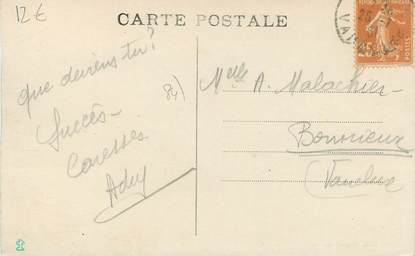 12€
CARTE POSTALE
que deviens tu?
Succès-
Caresses
Ady
84)
Melle A. Malachier-
Bonnieux
(Vaucluse
25